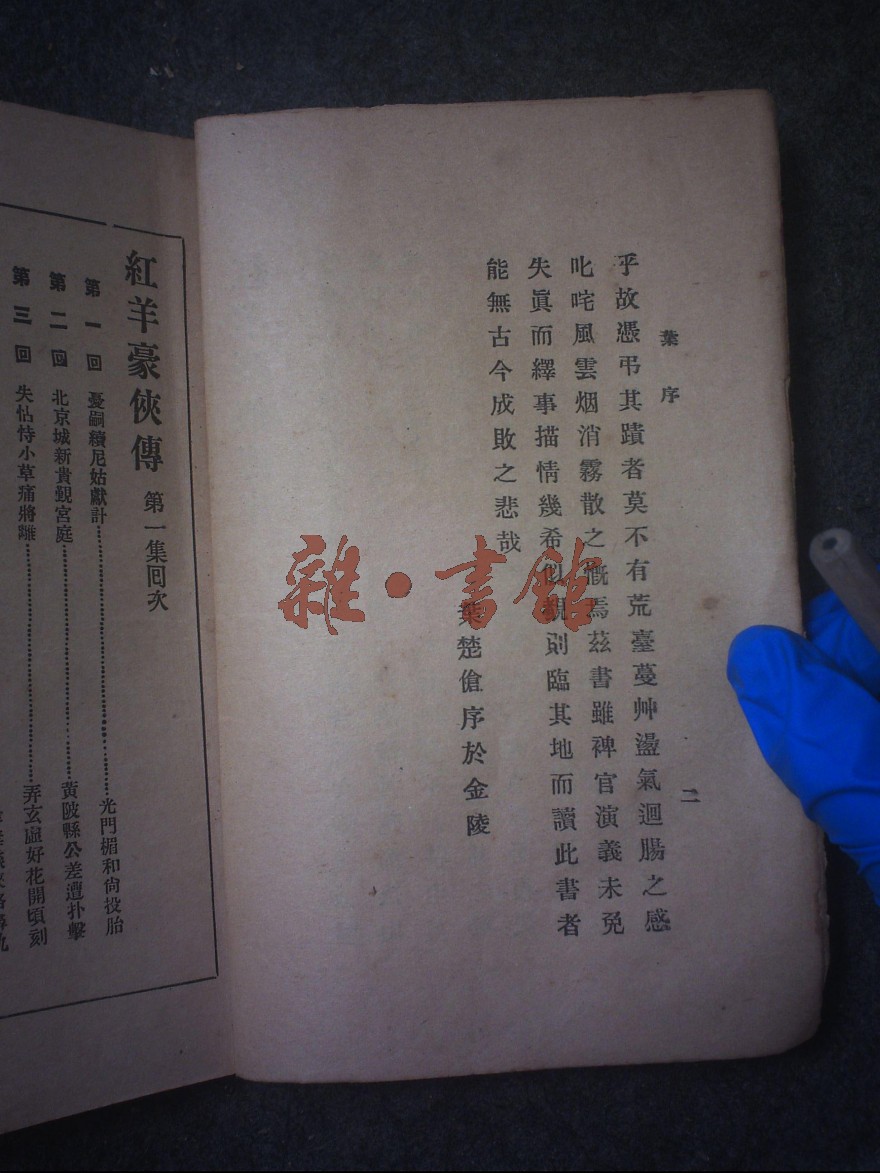 葉序
二
乎故憑弔其蹟者莫不有荒臺蔓艸盪氣迴腸之感
叱咤風雲烟消霧散之慨焉茲書雖裨官演義未免
失眞而繹事描情幾希似親剧臨其地而讀此書者
能無古今成敗之悲哉
葉楚傖序於金陵
雜·書館
紅羊豪俠傳 第一集囘次
第一回 憂嗣續尼姑獻計 光門楣和尙投胎
第二回 北京城新貴覲宮庭 黃陂縣公差遭扑擊
第三回 失怙恃小草痛將離 弄玄虛好花開頃刻